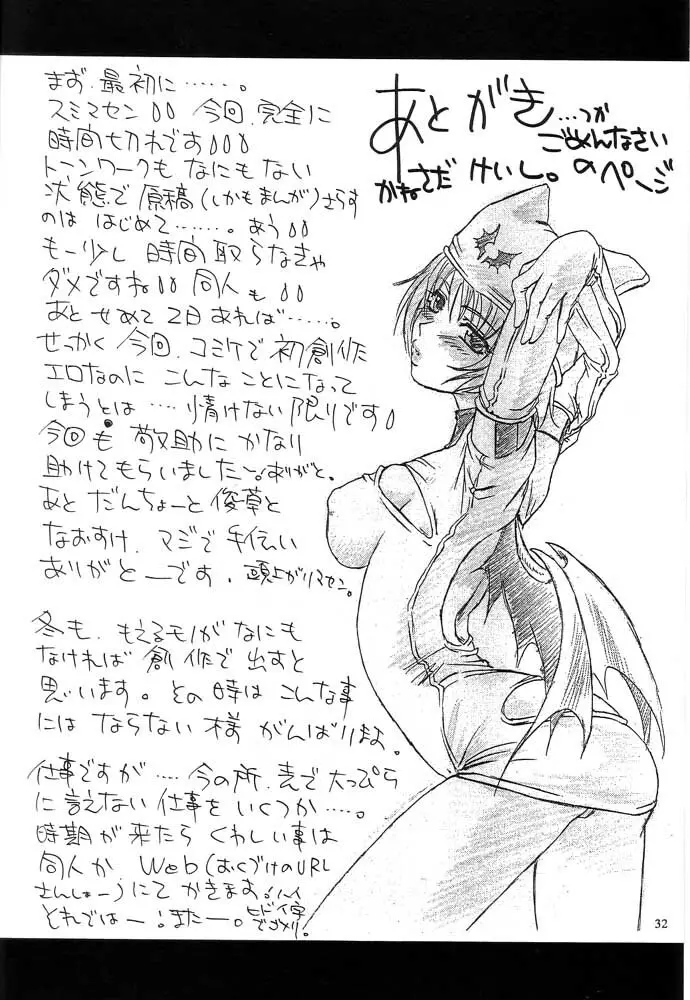 あとがき…つか
ごめんなさい
のページ
かねさだ けいし。
まず、最初に……。
スミマセン 今回、完全に
時間切れです
トーンワークも なにもない
状態で 原稿(しかもまんが)さらす
のは はじめて……。あう
もー少し 時間 取らなきゃ
ダメですね 同人も
あと せめて 2日あれば……。
せっかく 今回、コミケで 初創作
エロなのに こんな ことになって
しまうとは… 情けない 限りです
今回も 敬助に かなり
助けてもらいました〜。ありがと。
あと だんちょーと 俊草と
なおすけ、マジで 手伝い
ありがとーです。頭上がりマセン。
冬も、もえるモノが なにも
なければ 創作で 出すと
思います。その時は こんな事
には ならない 様 がんばりまよ。
仕事ですが…. 今の所、表で 大っぴら
に 言えない 仕事を いくつか….。
時期が 来たら くわしい事は
同人か Web(おくづけのURL
さんしょー)にて かきます!ハイ
それではー!またー。ヒドイ字
でゴメソ!
32